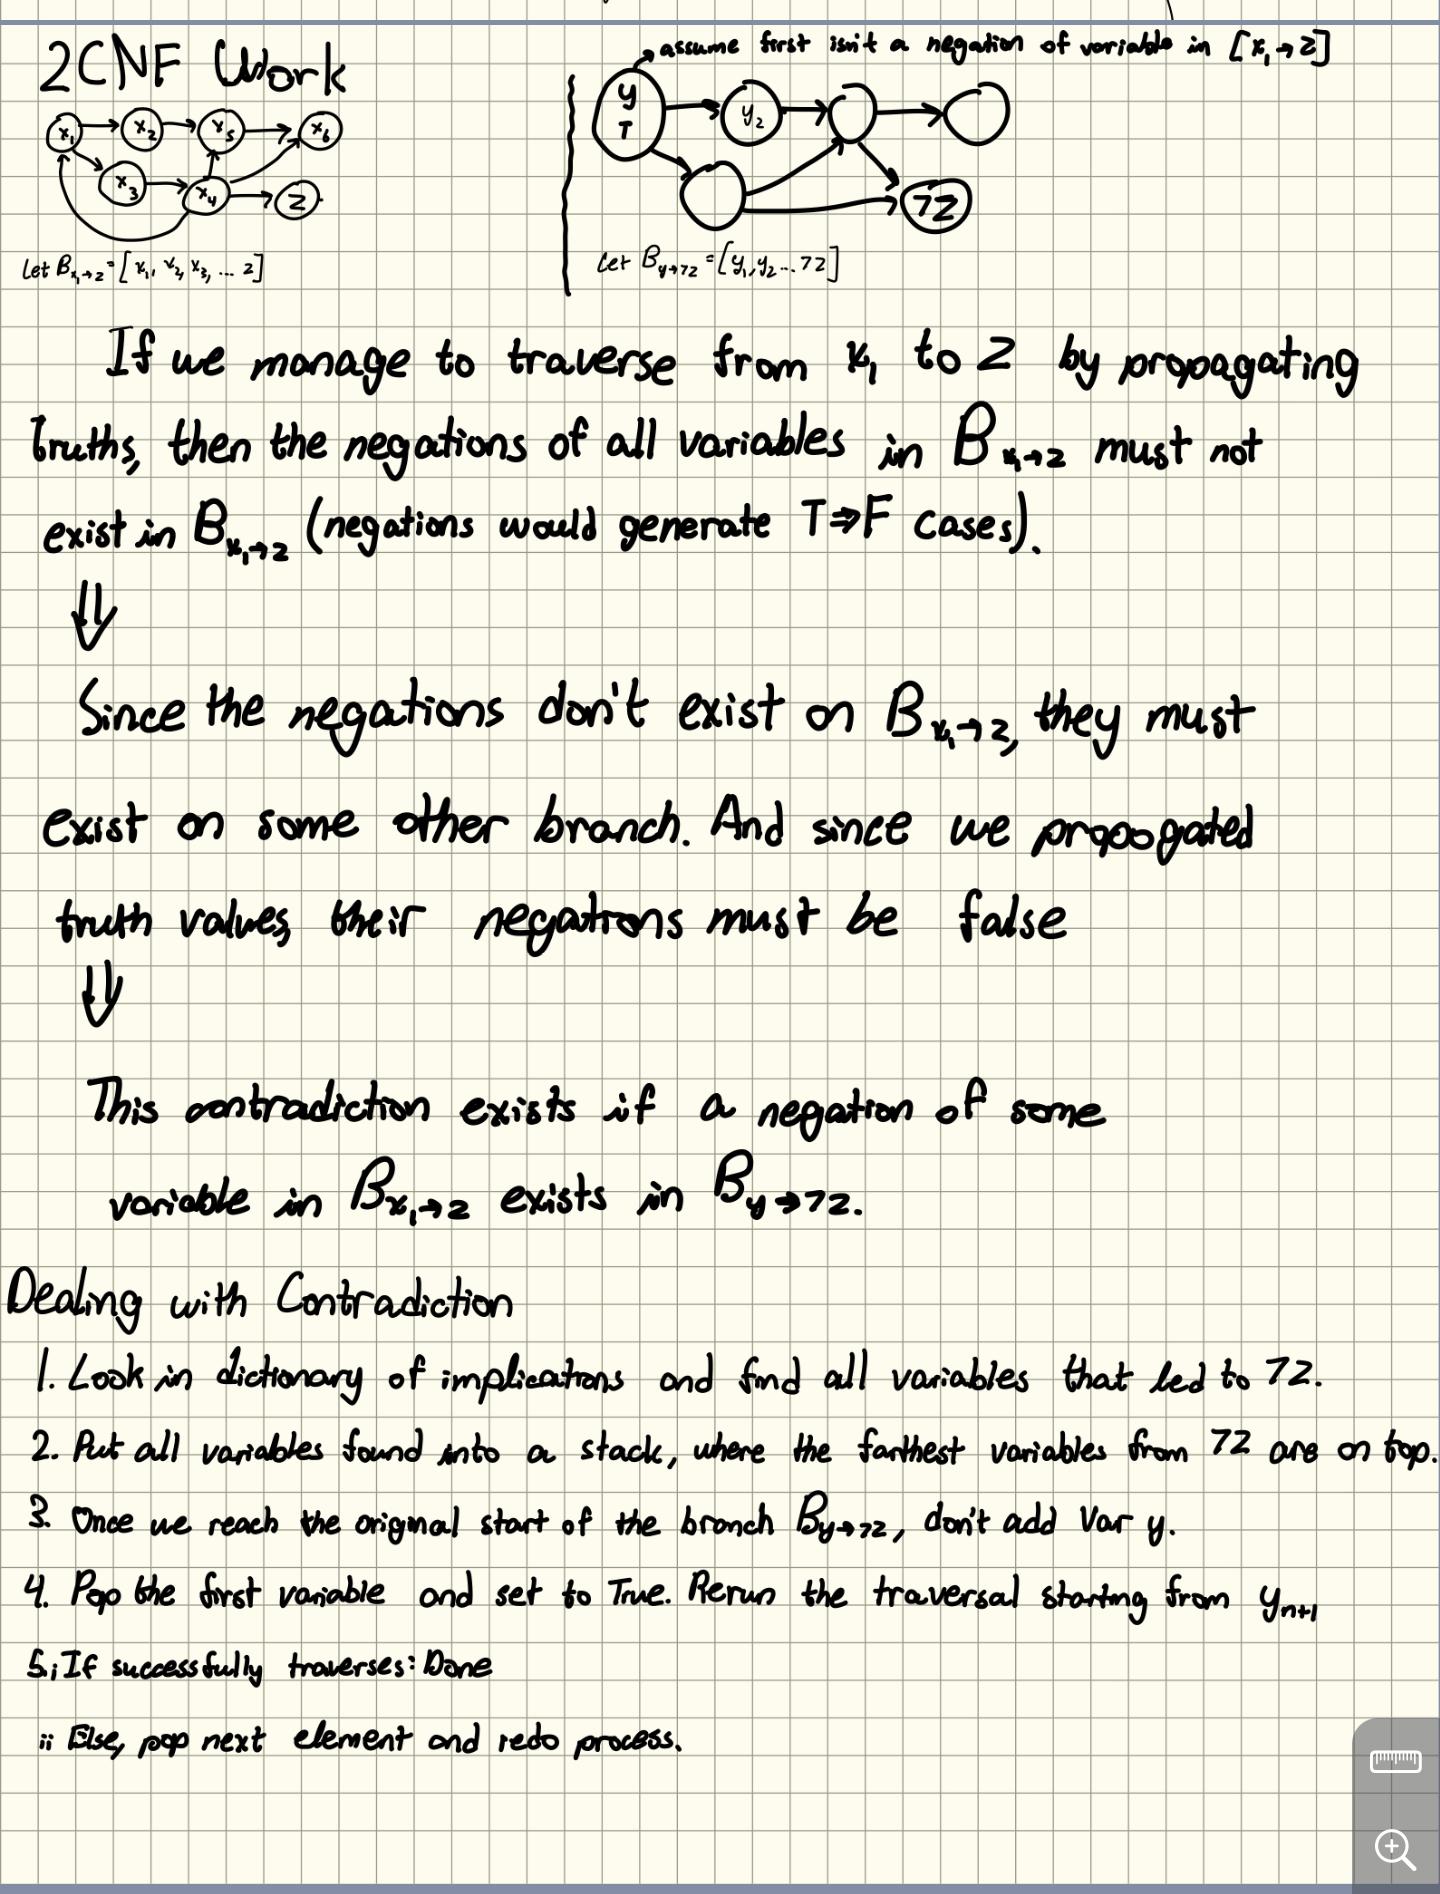 2CNF Work
assume first isn't a negation of variable in [x₁→z]
x₁ x₂ x₅ x₆
x₃ x₄ z
y
T
y₂
¬z
Let B_x₁→z = [x₁, x₂, x₃, ... z]
Let B_y→¬z = [y₁, y₂ ... ¬z]
If we manage to traverse from x₁ to z by propagating
truths, then the negations of all variables in B_x₁→z must not
exist in B_x₁→z (negations would generate T⇒F cases).
⇓
Since the negations don't exist on B_x₁→z, they must
exist on some other branch. And since we propogated
truth values, their negations must be false
⇓
This contradiction exists if a negation of some
variable in B_x₁→z exists in B_y→¬z.
Dealing with Contradiction
1. Look in dictionary of implications and find all variables that led to ¬z.
2. Put all variables found into a stack, where the farthest variables from ¬z are on top.
3. Once we reach the original start of the branch B_y→¬z, don't add Var y.
4. Pop the first variable and set to True. Rerun the traversal starting from y_n+1
5. i If successfully traverses: Done
ii Else, pop next element and redo process.